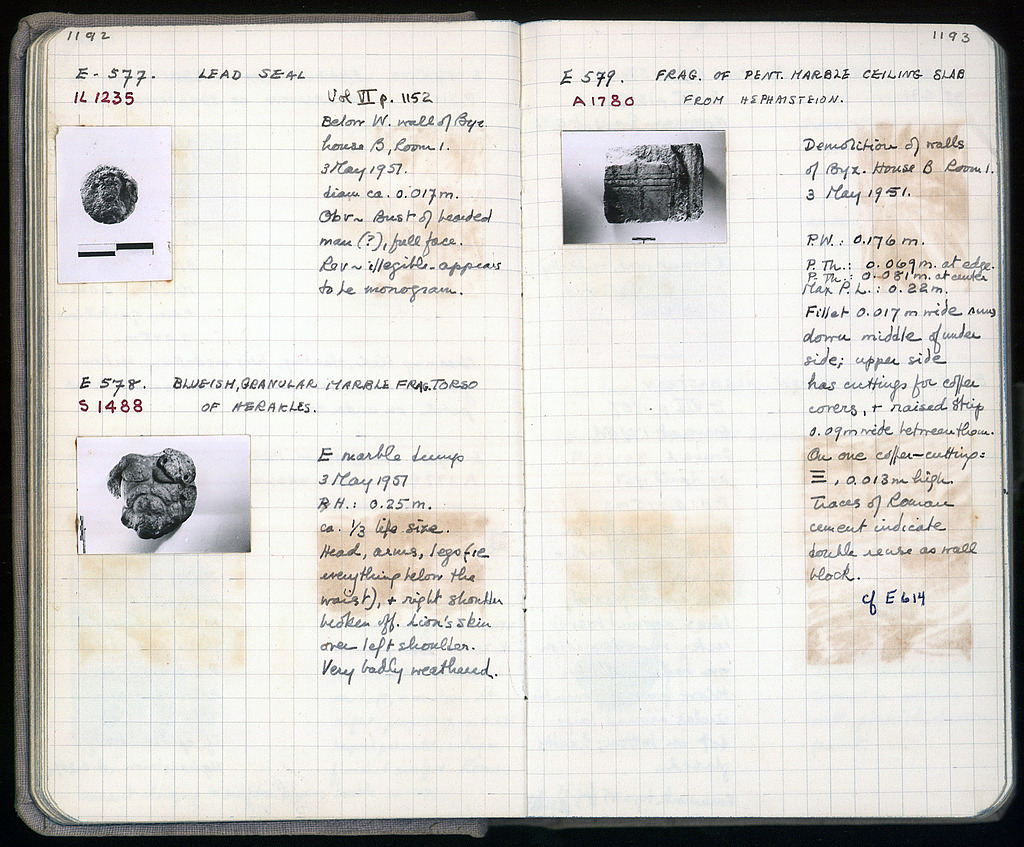 1192
E - 577. LEAD SEAL
IL 1235
Vol VI p. 1152
Below W. wall of Byz.
house B, Room 1.
3 May 1951.
diam ca. 0.017 m.
Obv ~ Bust of bearded
man (?), full face.
Rev ~ illegible - appears
to be monogram.
E 578. BLUEISH, GRANULAR MARBLE FRAG. TORSO
S 1488 OF HERAKLES.
E marble dump
3 May 1951
P.H.: 0.25 m.
ca. 1/3 life size.
Head, arms, legs (ie
everything below the
waist), + right shoulder
broken off. Lion's skin
over left shoulder.
Very badly weathered.
1193
E 579. FRAG. OF PENT. MARBLE CEILING SLAB
A 1780 FROM HEPHAISTEION.
Demolition of walls
of Byz. House B Room 1.
3 May 1951.
P.W.: 0.176 m.
P. Th.: 0.069 m. at edge.
P. Th.: 0.081 m. at center
Max P. L.: 0.22 m.
Fillet 0.017 m wide runs
down middle of under
side; upper side
has cuttings for coffer
covers, + raised strip
0.09 m wide between them.
On one coffer-cutting:
Ξ, 0.013 m high.
Traces of Roman
cement indicate
double reuse as wall
block.
cf E 614